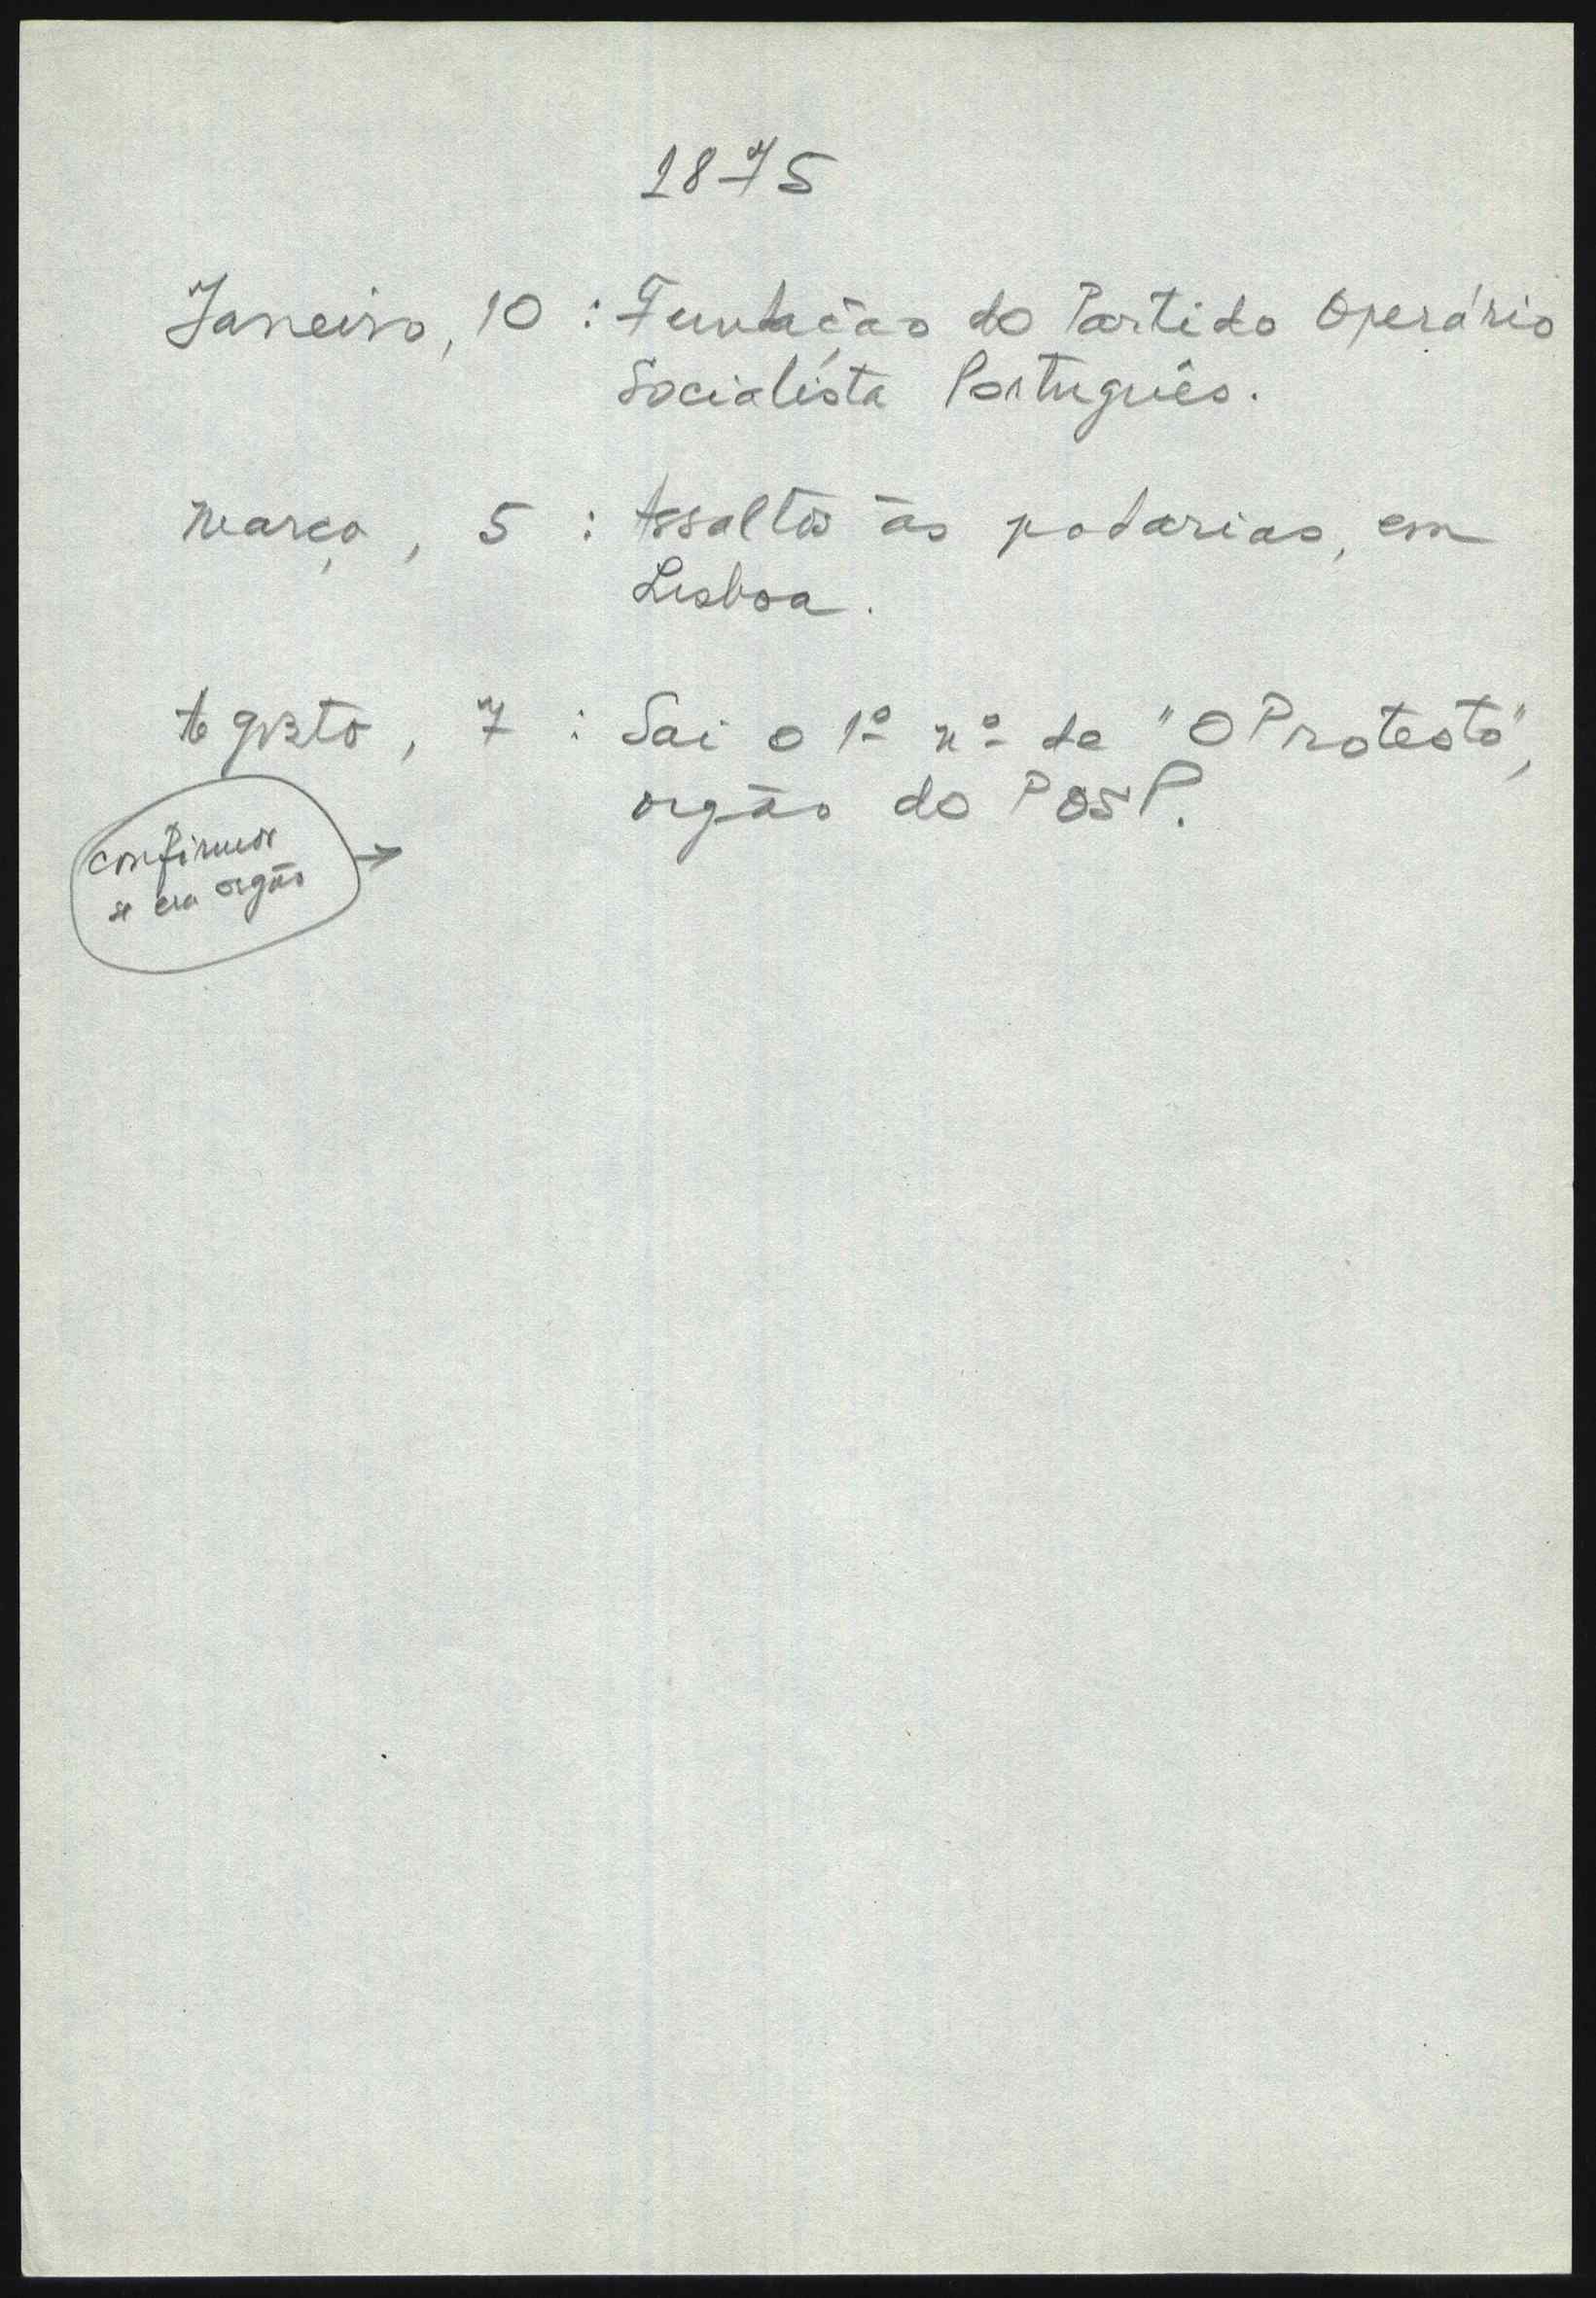 1875
Janeiro, 10 : Fundação do Partido Operário
Socialista Português.
Março, 5 : Assaltos às padarias, em
Lisboa.
Agosto, 7 : Sai o 1º nº de "O Protesto",
orgão do POSP.
confirmar
se era orgão
→